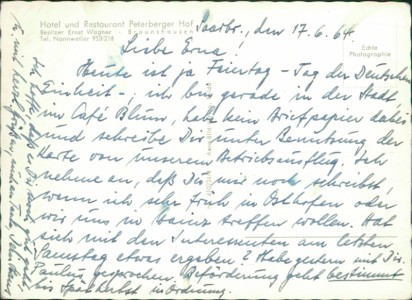 Hotel und Restaurant Peterberger Hof
Besitzer Ernst Wagner Braunshausen
Tel. Nonnweiler 953/218
Saarbr., den 17.6.64
Echte
Photographie
Liebe Erna!
Heute ist ja Feiertag - Tag der Deutschen
Einheit -, ich bin gerade in der Stadt
im Café Blum, habe kein Briefpapier dabei
und schreibe Dir unter Benutzung der
Karte von unserem Betriebsausflug. Ich
nehme an, daß Du mir noch schreibst,
wenn ich sehr früh in Osthofen oder
wir uns in Mainz treffen wollen. Hat
sich mit den Interessenten am letzten
Samstag etwas ergeben? Habe gestern mit Dir.
Paulus gesprochen. Beförderung geht bestimmt
bis Spätherbst in Ordnung.
Ich hoffe, daß es Dir gut geht